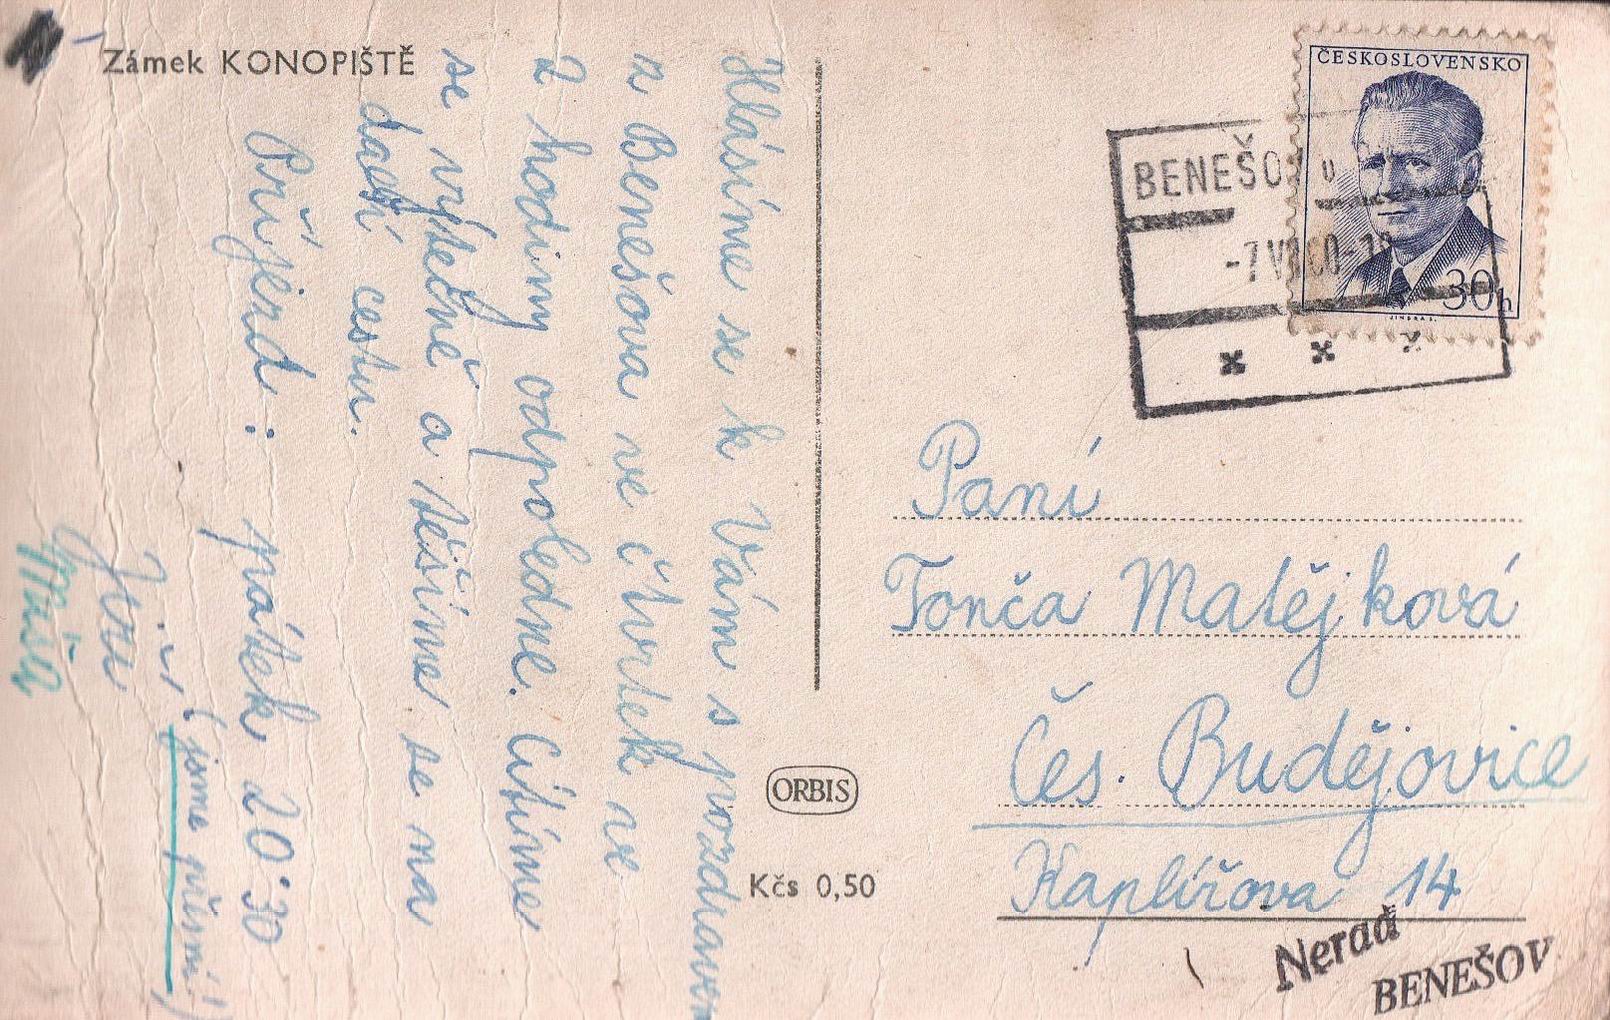 Zámek KONOPIŠTĚ
Hlásíme se k Vám s pozdravem
z Benešova ve čtvrtek ve
2 hodiny odpoledne. Cítíme
se výtečně a těšíme se na
další cestu.
Příjezd: pátek 20·30
(jsme přesní!)
Jiří
Máša
ORBIS
Kčs 0,50
ČESKOSLOVENSKO
30h
JINDRA S.
BENEŠOV u
-7 VII 60-18
x x x
Paní
Tonča Matějková
Čes. Budějovice
Kaplířova 14
Nerad
BENEŠOV